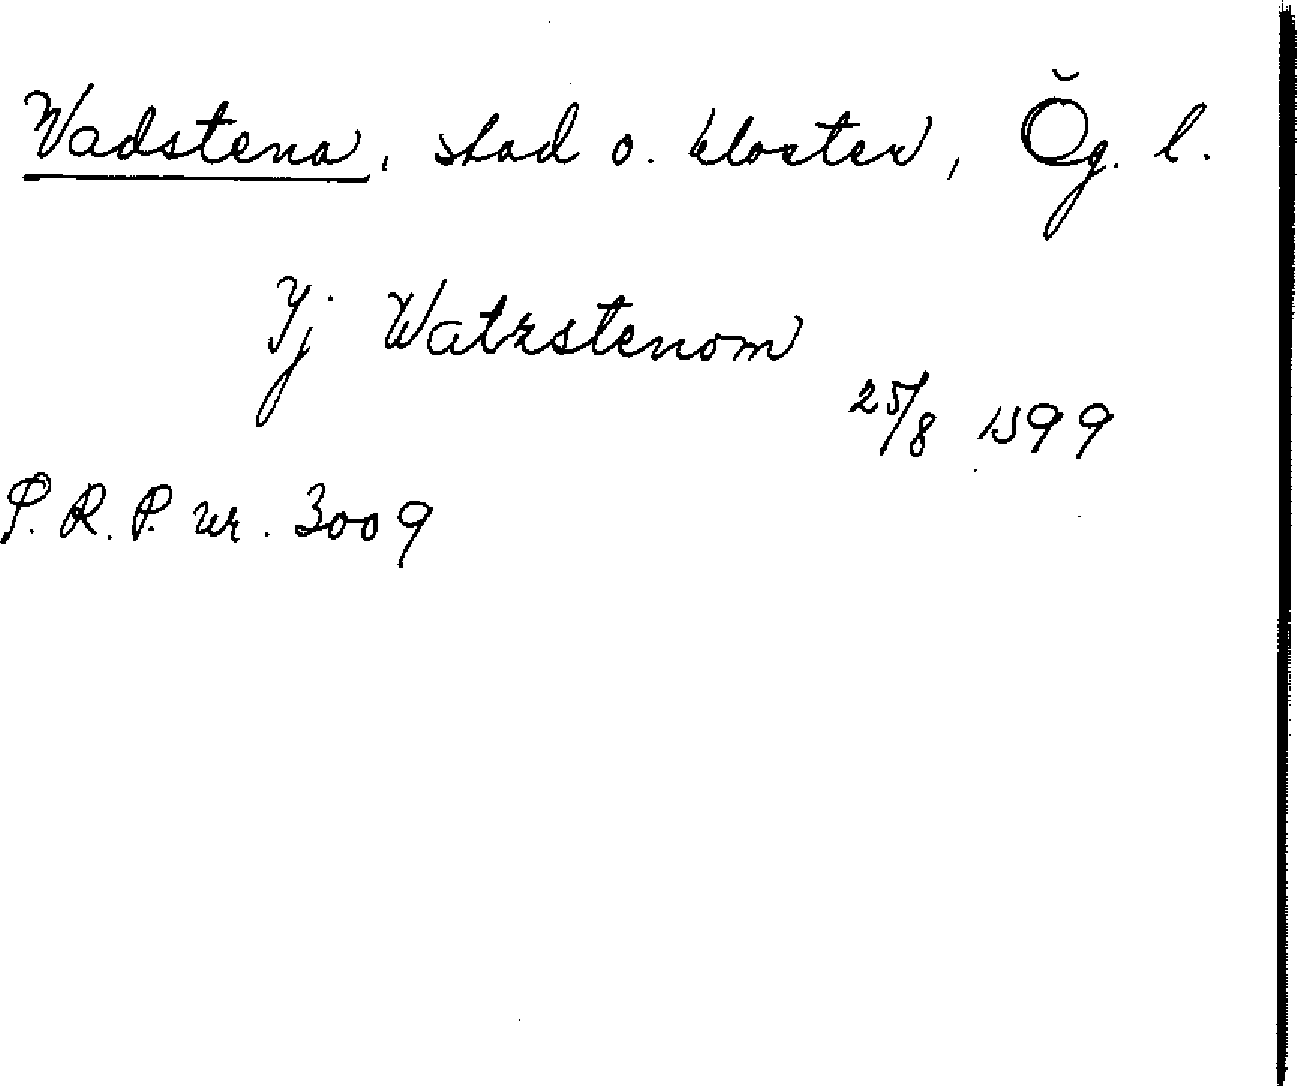 Vadstena, stad o. kloster, Ög. l.
Ij Watzstenom
25/8 1399
P.R.P. nr. 3009